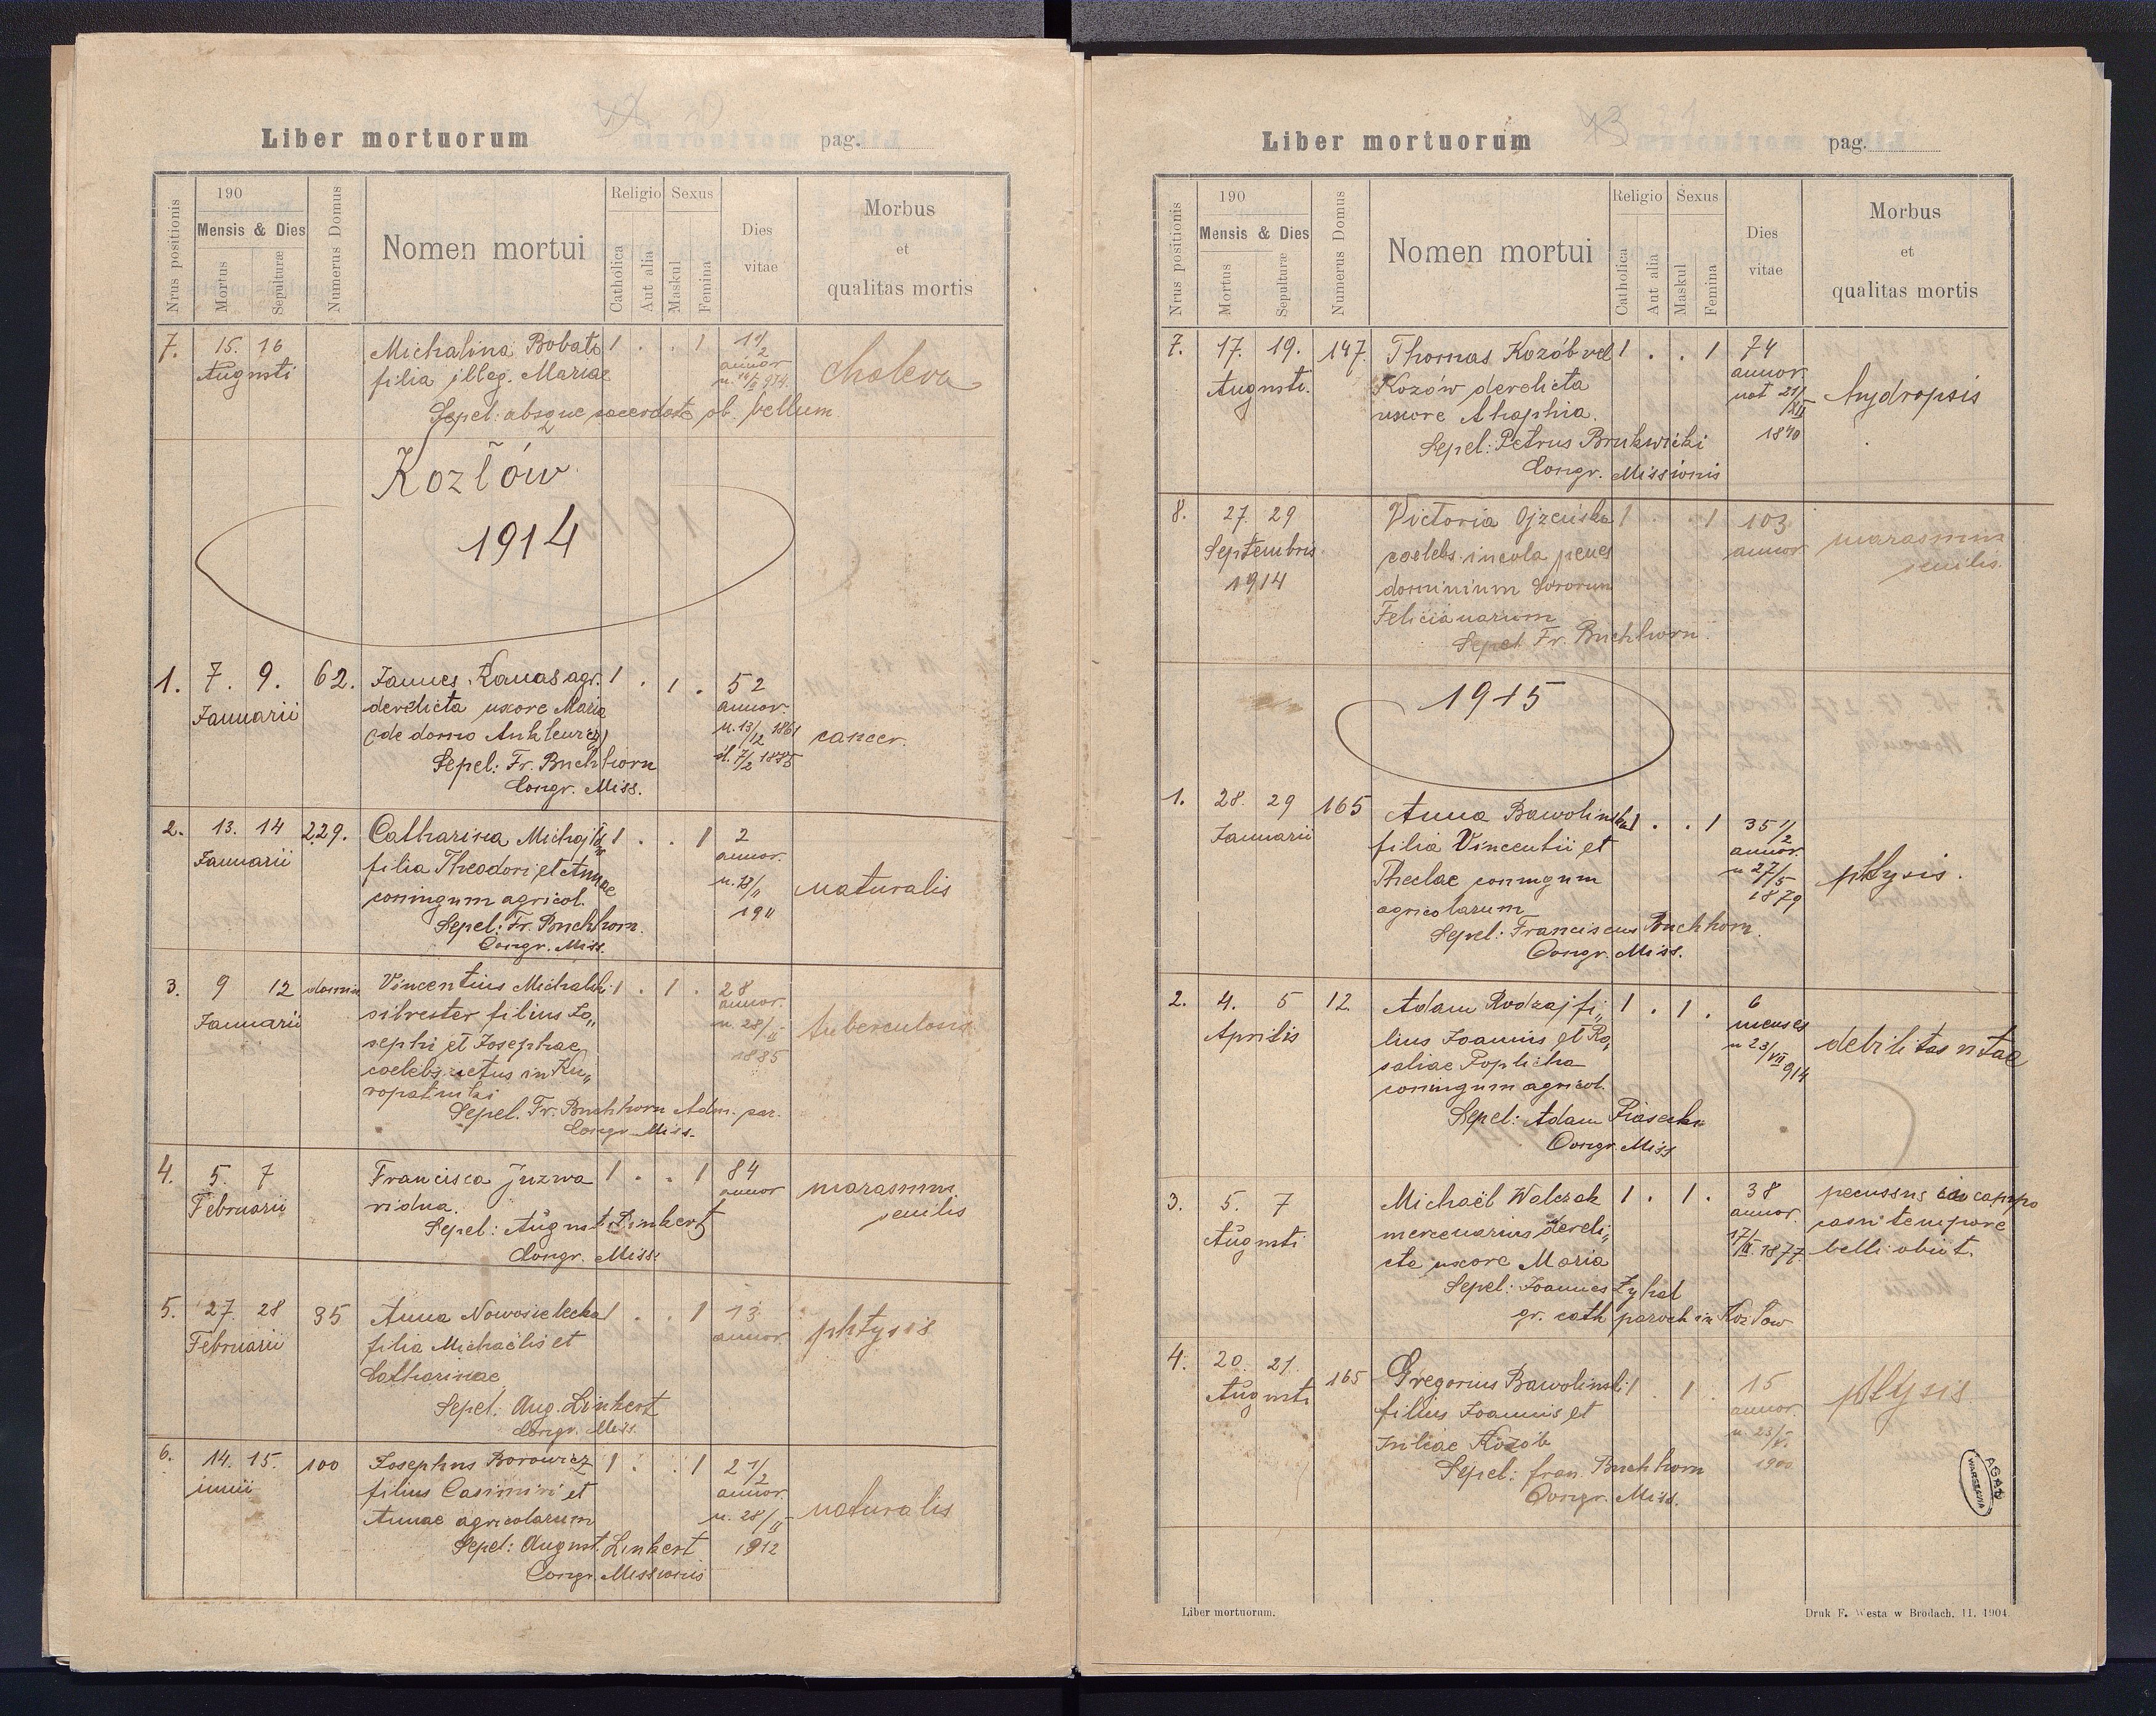 Liber mortuorum
pag.
Nrus positionis
190
Mensis & Dies
Mortus
Sepulturæ
Numerus Domus
Nomen mortui
Religio
Catholica
Aut alia
Sexus
Maskul
Femina
Dies
vitae
Morbus
et
qualitas mortis
7. 15. 16 Michalina 1 . . 1 1 1/2
Augusti filia illeg. Mariae annor cholera
Sepel: absque sacerdote ob bellum
Kozłów
1914
1. 7. 9. 62. Joannes Kanas agr. 1 . 1 . 52
Januarii derelicta uxore Maria annor.
(de domo n. 13/12 1861 cancer.
Sepel: Fr. Buchhorn
Congr. Miss.
2. 13. 14 229. Catharina 1 . . 1 2
Januarii filia Theodori et Annae annor.
coniugum agricol. naturalis
Sepel: Fr. Buchhorn. 1911
Congr. Miss.
3. 9 12 domin Vincentius Michalski 1 . 1 . 28
Januarii silvester filius Jo„ annor.
sephi et Josephae tuberculosis
coelebs in Ku„ 1885
Sepel. Fr. Buchhorn Adm. par.
Congr. Miss.
4. 5. 7 Francisca Juzwa 1 . . 1 84
Februarii vidua. annor marasmus
Sepel: August Linkert senilis
Congr. Miss.
5. 27. 28 35 Anna Nowosielecka 1 . . 1 13
Februarii filia Michaelis et annor. phtysis
Catharinae
Sepel: Aug. Linkert
Congr. Miss.
6. 14. 15. 100 Josephus Borowicz 1 . . 1 2 1/2
iunii filius Casimiri et annor
Annae agricolarum n. 28/II naturalis
Sepel: August. Linkert 1912
Congr. Missionis
Liber mortuorum
pag.
Nrus positionis
190
Mensis & Dies
Mortus
Sepulturæ
Numerus Domus
Nomen mortui
Religio
Catholica
Aut alia
Sexus
Maskul
Femina
Dies
vitae
Morbus
et
qualitas mortis
7. 17. 19. 147. Thomas Kozób vel 1 . . 1 74
Augusti. Kozów derelicta annor.
uxore Ahaphia. nat 21/XII hydropsis
Sepel: Petrus 1840
Congr. Missionis
8. 27. 29 Victoria 1 . . 1 103
Septembris coelebs incola penes annor marasmus
1914 dominium Sororum senilis.
Felicianarum
Sepel Fr. Buchhorn.
1915
1. 28. 29 165 Anna Bawolinska 1 . . 1 35 1/2
Januarii filia Vincentii et annor.
Theclae coniugum n 27/5 phtysis.
agricolarum 1879
Sepel: Franciscus Buchhorn.
Congr. Miss.
2. 4. 5 12. Adam Rodzaj fi„ 1 . 1 . 6
Aprilis lius Joannis et Ro„ menses
saliae Poplicha n 23/VII 914 debilitas vitae
coniugum agricol.
Sepel: Adam
Congr. Miss
3. 5. 7 Michaël Walczak 1 . 1 . 38 percussus
Augusti mercenarius dereli„ annor. tempore
cta uxore Maria 1877. belli obiit.
Sepel: Joannes
gr. cath paroch in Kozłow
4. 20. 21. 165 Gregorius Bawolinski 1 . 1 . 15
Augusti filius Joannis et annor. phtysis
Juliae Kozób
Sepel: fran. Buchhorn 1900
Congr. Miss.
AGAD
WARSZAWA
Liber mortuorum.
Druk F. Westa w Brodach, 11. 1904.